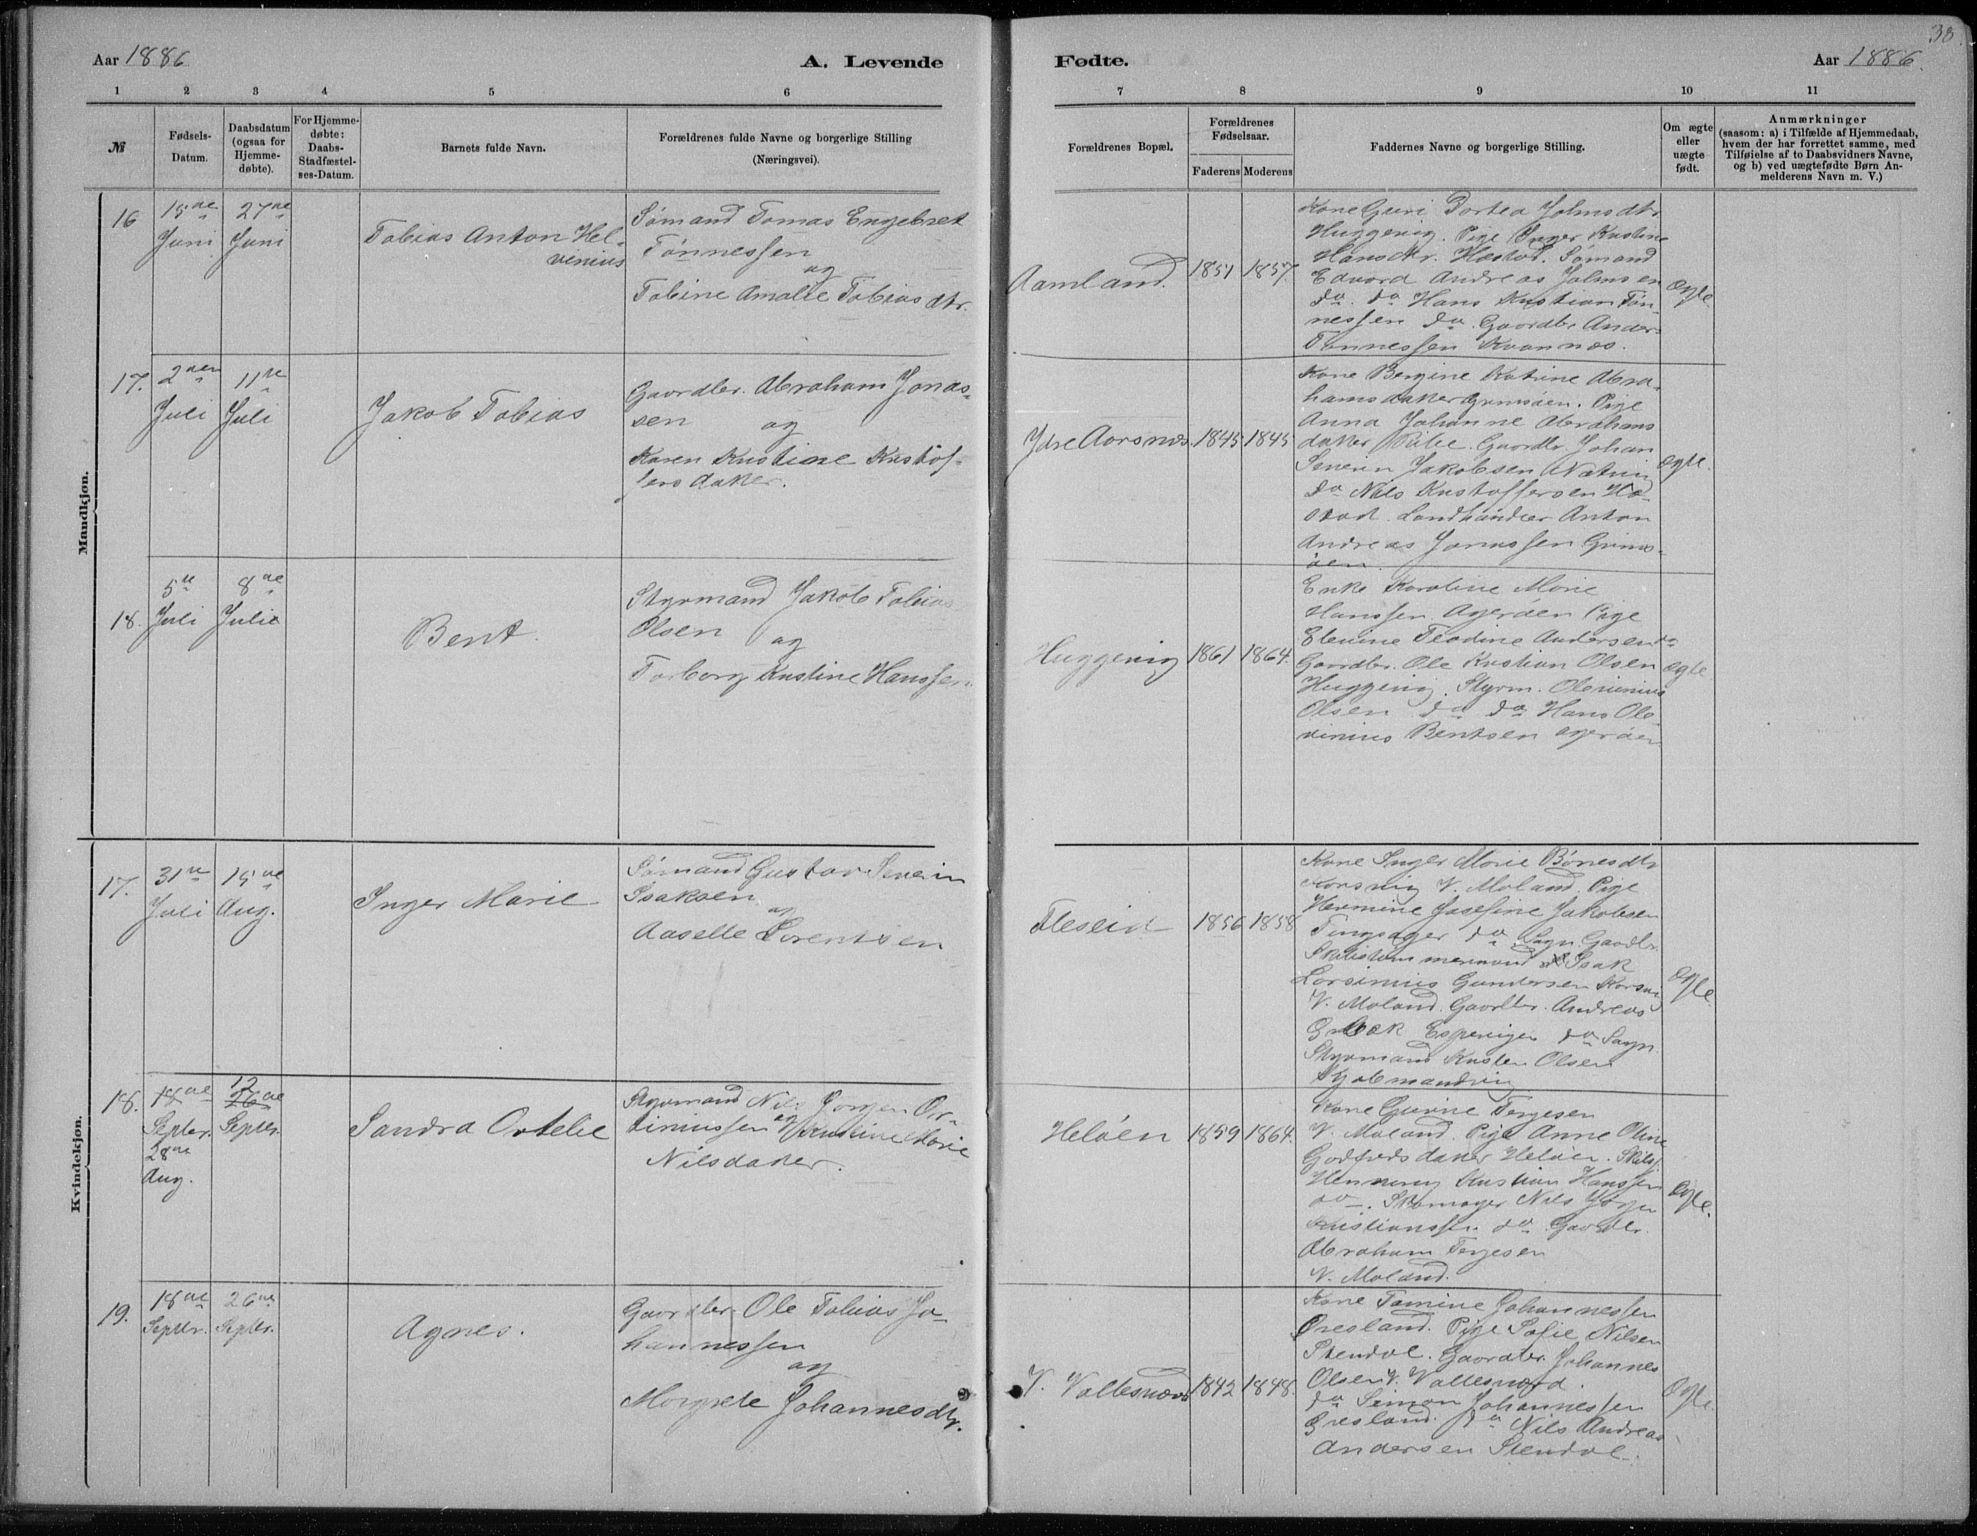 38
Aar 1886
A. Levende
Fødte.
Aar 1886.
1
2
3
4
5
6
7
8
9
10
11
№
Fødsels-
Datum.
Daabsdatum
(ogsaa for
Hjemme-
døbte).
For Hjemme-
døbte:
Daabs-
Stadfæstel-
ses-Datum.
Barnets fulde Navn.
Forældrenes fulde Navne og borgerlige Stilling
(Næringsvei).
Forældrenes Bopæl.
Forældrenes
Fødselsaar.
Faderens
Moderens
Faddernes Navne og borgerlige Stilling.
Om ægte
eller
uægte
født.
Anmærkninger
(saasom: a) i Tilfælde af Hjemmedaab,
hvem der har forrettet samme, med
Tilføielse af to Daabsvidners Navne,
og b) ved uægtefødte Børn An-
melderens Navn m. V.)
Mandkjøn.
16
15de
Juni
27de
Juni
Tobias Anton Hel-
venius
Sømand Tomas Engebret
Tønnessen
og
Tobine Amalie Tobias dtr.
Aamland.
1851
1857.
Kone Guri Dortea Johnsdtr
Huggevig. Pige Inger Kristine
Hansdtr. Hæstad. Sømand
Edvard Andreas Johnsen
do. do Hans Kristian Tøn-
nessen do. Gaardbr. Anders
Tønnessen Kvannæs.
ægte.
17.
2den
Juli
11te
Juli
Jakob Tobias
Gaardbr. Abraham Jonas-
sen og
Karen Kristine Kristof-
fers daker.
Ydre Aarsnæs.
1845
1845
Kone Bergine Katrine Abra-
hams daker Grimsøen. Pige
Anna Johanne Abrahams
daker Gaardbr. Johan
Severin Jakobsen
do Nils Kristoffersen Hæ-
stad. Landhandler Anton
Andreas Jonassen Grims-
øen.
ægte.
18.
5te
Juli
8de
Julie
Bent.
Styrmand Jakob Tobias
Olsen og
Torborg Kristine Hanssen.
Huggevig
1861
1864.
Enke Karoline Marie
Hanssen Agerøen Pige
Elenine Teodine Andersen do
Gaardbr. Ole Kristian Olsen
Huggevig. Styrm. Olevinius
Olsen do do Hans Ole-
vinius Bentsen Agerøen
ægte
Kvindekjøn.
17.
31te
Juli
15de
Aug.
Inger Marie
Sømand Gustav Severin
Isaksen
og
Aaselle Lorentsen
Fleseid
1856
1858
Kone Inger Marie Bønesdtr
Korsvig V. Moland. Pige
Hermine Josefine Jakobsen
Tingsager do. Gaardbr.
Isak
Gundersen Korsvig
V. Moland. Gaardbr. Andreas
do
Styrmand Olsen
ægte.
18.
18de
Septbr.
28de
Aug.
12
26de
Septbr.
Sandra Ortelie
Styrmand Nils Jørgen
og Kristine Marie
Nilsdaker.
Heløen
1859
1864.
Kone Gurine Terjesen
V. Moland. Pige Anne Oline
Godfreds daker Heløen.
Henning Kristian Hanssen
do. Skomager Nils Jørgen
Kristianssen do. Gaardbr.
Abraham Terjesen
V. Moland.
ægte.
19.
18de
Septbr.
26de
Septbr.
Agnes.
Gaardbr. Ole Tobias Jo-
hannessen
og
Margrete Johannesdtr.
V. Vallesværd
1842
1848.
Kone Tomine Johannessen
Øresland. Pige Sofie Nilsen
Stendal. Gaardbr. Johannes
Olsen V. Vallesværd.
do Simon Johannessen
Øresland. do Nils Andreas
Andersen Stendal.
ægte.